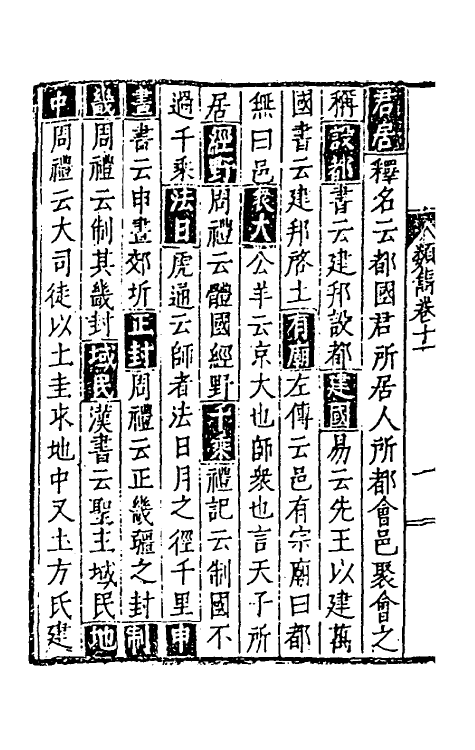 類雋卷十一
一
君居釋名云都國君所居人所都會邑聚會之
稱設都書云建邦設都建國易云先王以建萬
國書云建邦啓土有廟左傳云邑有宗廟曰都
無曰邑衆大公羊云京大也師衆也言天子所
居經野周禮云體國經野千乘禮記云制國不
過千乘法日虎通云師者法日月之徑千里申
畫書云申畫郊圻正封周禮云正畿疆之封制
畿周禮云制其畿封域民漢書云聖主域民地
中周禮云大司徒以土圭求地中又土方氏建